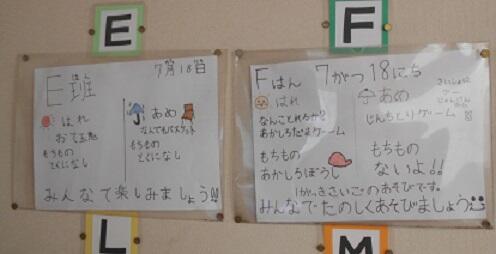 E
F
E班
7月18日
はれ
おて玉
もちもの
とくになし
あめ
なんでもバスケット
もちもの
とくになし
みんなで楽しみましょう!!
Fはん 7がつ18にち
はれ
なんことれるか?
あかしろたまゲーム
もちもの
あかしろぼうし
あめ
じんとりゲーム
さいしょは
グー
じゃんけん
もちもの
ないよ!!
1がっきさいごのあそびです。
みんなでたのしくあそびましょう
L
M